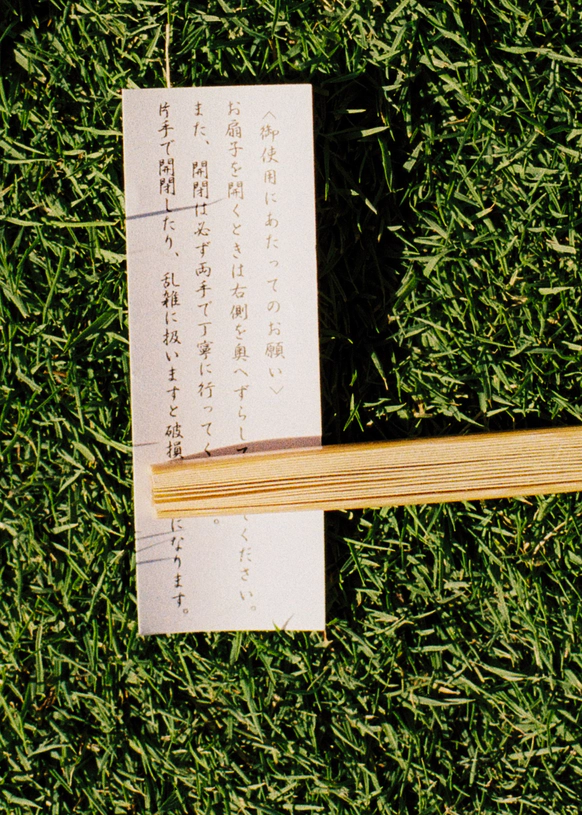 〈御使用にあたってのお願い〉
お扇子を開くときは右側を奥へずらして ください。
また、開閉は必ず両手で丁寧に行ってく 。
片手で開閉したり、乱雑に扱いますと破損 になります。